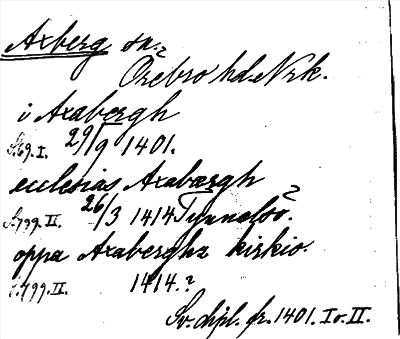 Axberg sn.
Örebro hd. Nrk.
i Axabergh
S. 69. I. 29/9 1401.
ecclesias Axabærgh
S. 799. II. 26/3 1414
oppa Axaberghz kirkio.
S. 799. II. 1414.?
Sv. dipl. fr. 1401. I o. II.